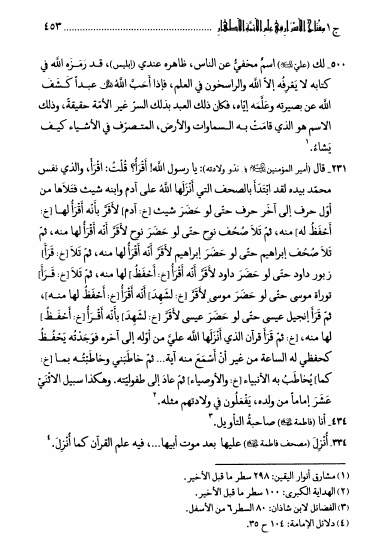 ج ١ / مفتاح الأسرار في علم الأئمة الأطهار ........ ٤٥٣
٥٠٠ـ لك (علي) اسمٌ مخفيٌّ عن الناس، ظاهره عندي (إبليس)، قد رَمَزه اللّه في
كتابه لا يَعرِفُه إلاّ واللّه والراسخون في العلم، فإذا أحبَّ اللّهُ عبداً كشَفَ
اللّه عن بصيرته وعلَّمه إيّاه، فكان ذلك العبد بذلك السرّ غير الأمّة حقيقةً، وذلك
الاسم هو الذي قامَتْ به السماوات والأرض، المتصرّف في الأشياء كيف
يَشاءُ.١
٢٣١ـ قال (أمير المؤمنين ولادته): يا رسول اللّه! أَقْرَأُ؟ قُلْتُ: اقْرَأْ، والذي نفس
محمّد بيده لقد ابتَدَأ بالصحف التي أنزَلَها اللّهُ على آدم وابنه شيث فتَلاها من
أوّل حرف إلى آخر حرف حتّى لو حَضَرَ شيث [خ: آدم] لأقرَّ بأنّه أَقْرَأُ لها [خ:
أحْفَظُ له] منه، ثمّ تَلاَ صُحُف نوح حتّى لو حَضَرَ نوح لأقرّ بأنّه أَقْرَأُ لها منه، ثمّ
تَلاَ صحُفَ إبراهيم حتّى لو حَضَرَ إبراهيم لأقرّ بأنّه أَقْرَأُ لها منه، ثمّ تَلاَ [خ: قرأ]
زبور داود حتّى لو حَضَرَ داود لأقرّ بأنّه أَقْرَأُ [خ: أَحْفَظُ] لها منه، ثمّ تَلاَ [خ: قَرَأَ]
توراة موسى حتّى لو حَضَرَ موسى لأقَرَّ [خ: لشَهِدَ] أنّه أَقْرَأُ [خ: أحْفَظُ لها منه]،
ثمّ قَرَأَ إنجيل عيسى حتّى لو حَضَر عيسى لأقَرَّ [خ: لشَهِدَ] بأنّه أَقْرَأُ [خ: أحْفَظُ]
لها منه، [خ: ثمّ قَرَأَ قرآن الذي أنزَلَها اللّه عليَّ من أوّله إلى آخره فوَجَدْتُه يَحْفَظُ
كحفظي له الساعة من غير أنْ أسْمَعَ منه آية... ثمّ خاطَبَني وخاطَبْتُه بما [خ:
كما] يُخاطَب به الأنبياء [خ: والأوصياء] ثمّ عادَ إلى طفوليّته. وهكذا سبيل الاثنَيْ
عَشَرَ إماماً من ولده، يَفعَلُون في ولادتهم مثله.٢
٤٣٤ـ أنا (فاطمة) صاحبةُ التأويل.٣
٣٣٤ـ أُنزِلَ (مصحف فاطمة) عليها بعد موت أبيها...، فيه علم القرآن كما أُنزِلَ.٤
(١) مشارق أنوار اليقين: ٢٩٨ سطر ما قبل الأخير.
(٢) الهداية الكبرى: ١٠٠ سطر ما قبل الأخير.
(٣) الفضائل لابن شاذان: ٨٠ السطر ٦ من الأسفل.
(٤) دلائل الإمامة: ١٠٤ ح ٣٥.